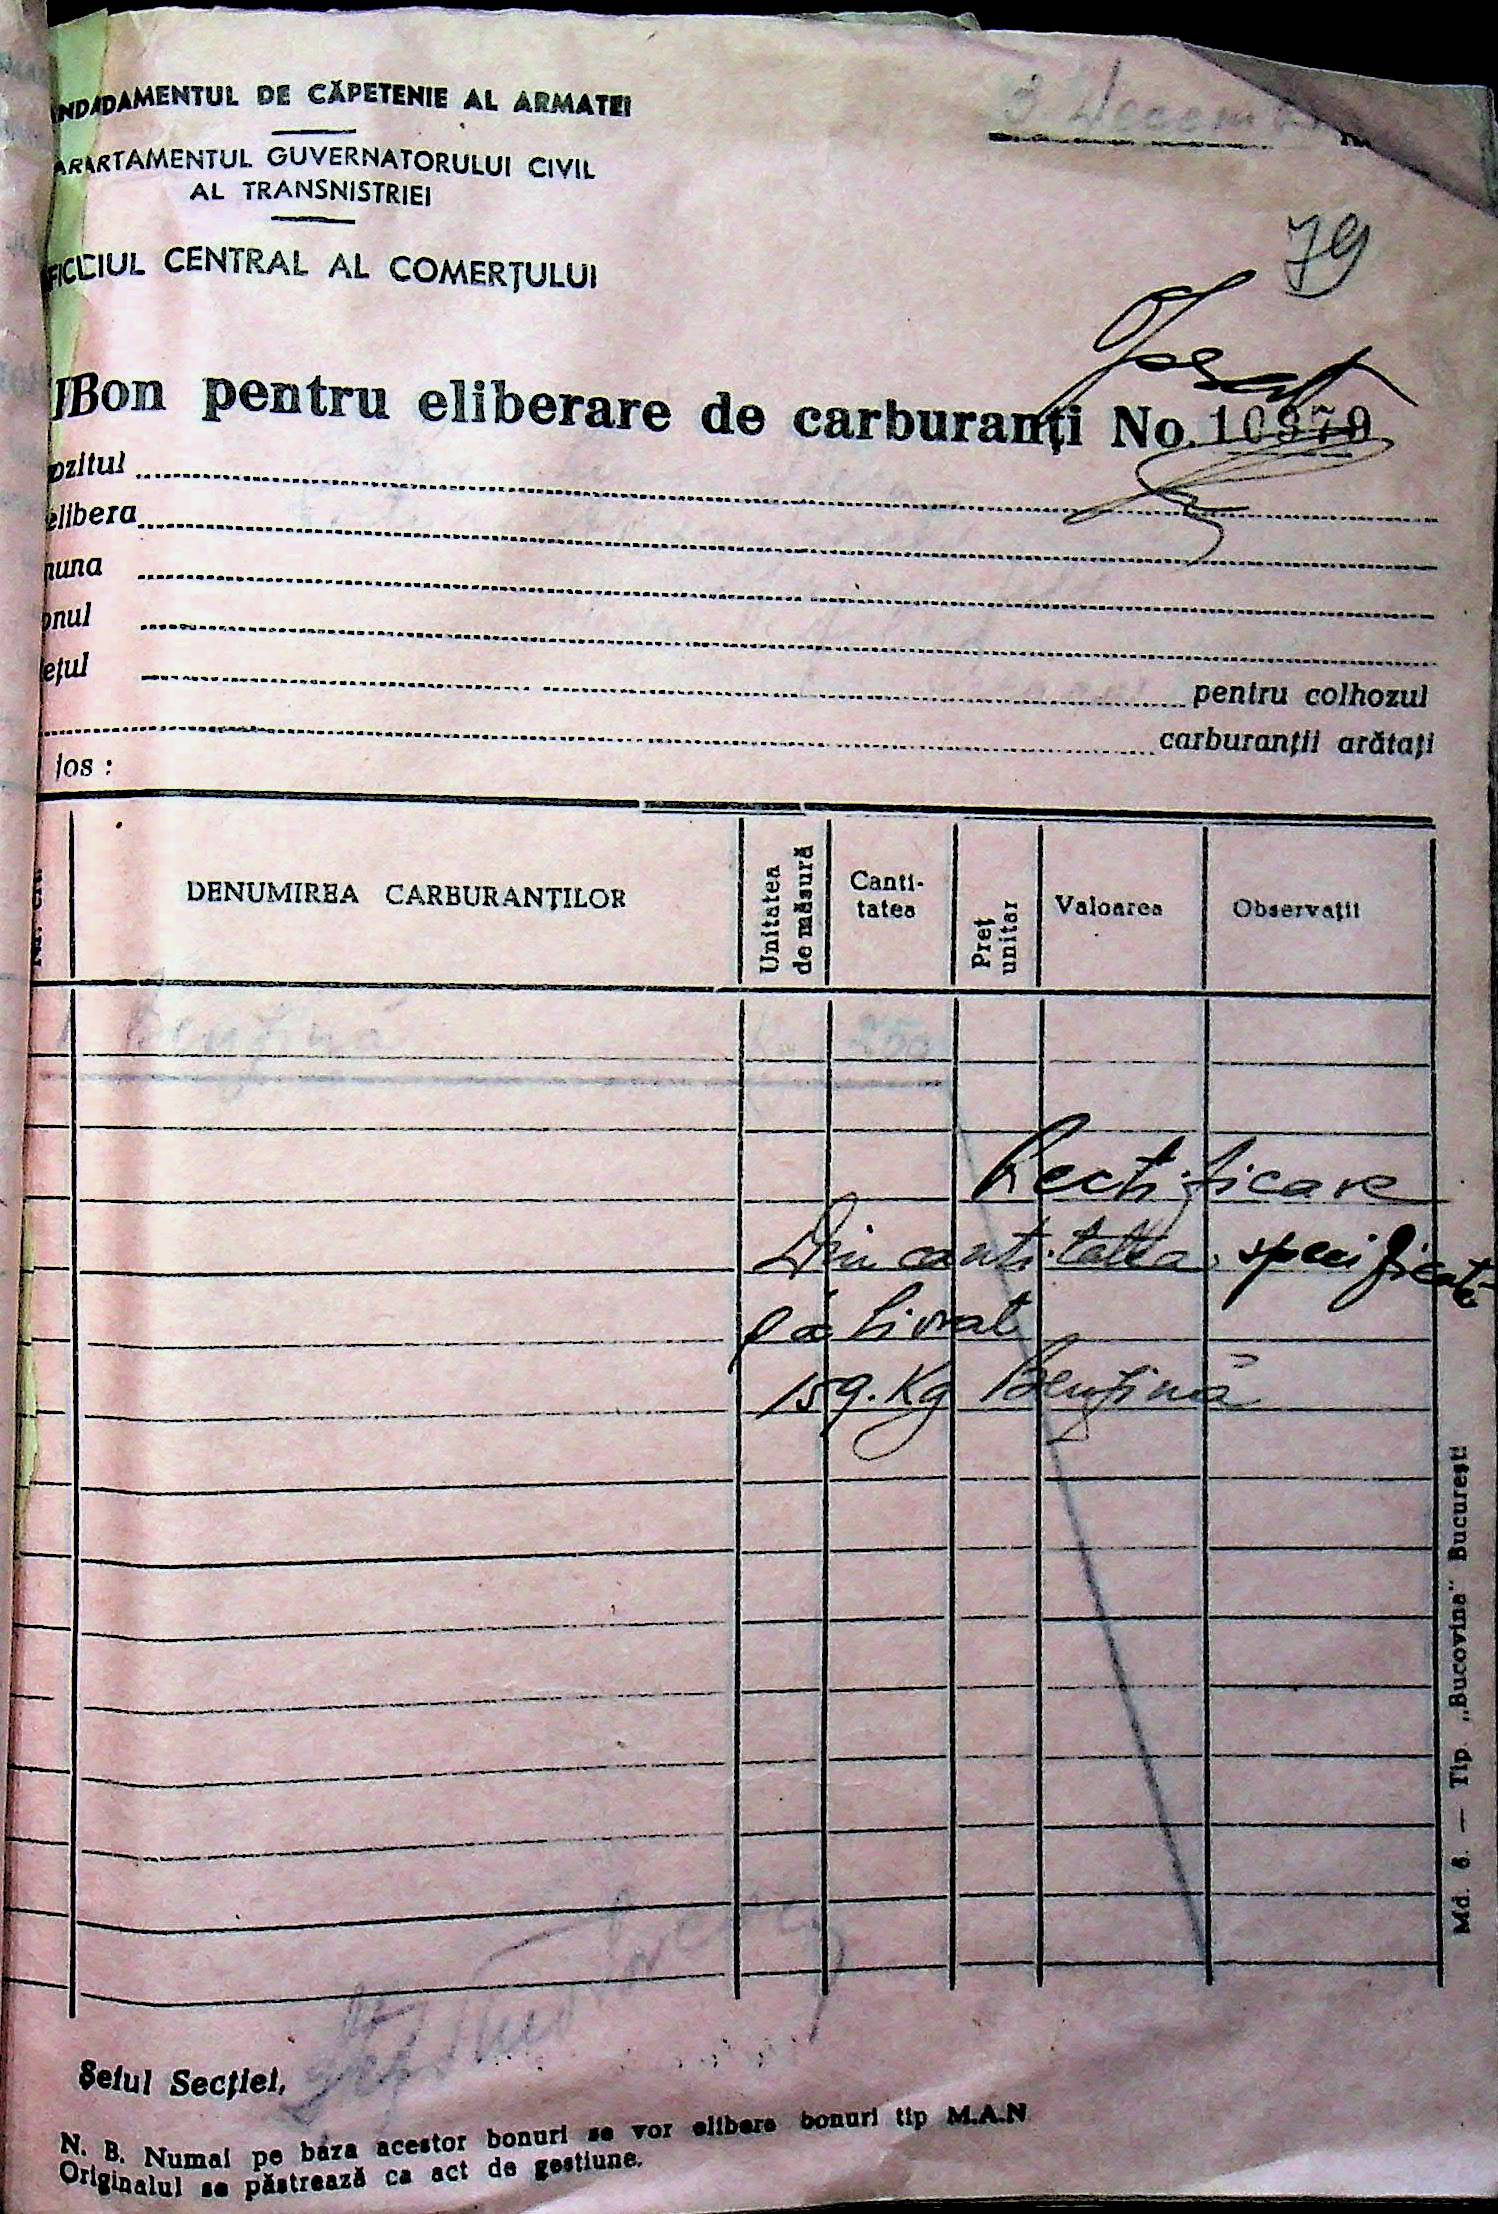 NDADAMENTUL DE CĂPETENIE AL ARMATEI
3 Decem
ARARTAMENTUL GUVERNATORULUI CIVIL
AL TRANSNISTRIEI
FICICIUL CENTRAL AL COMERȚULUI
79
Bon pentru eliberare de carburanți No. 10979
ozitul
elibera
nuna
onul
ețul pentru colhozul
carburanții arătați
jos :
DENUMIREA CARBURANȚILOR Unitatea de măsură Canti-tatea Preț unitar Valoarea Observații
Benzină K 250
Rectificare
Din cantitatea specificată
s'a livrat
159. Kg Benzină
Șeful Secției,
N. B. Numai pe baza acestor bonuri se vor elibera bonuri tip M.A.N
Originalul se păstrează ca act de gestiune.
Md. 6. — Tip. „Bucovina" București